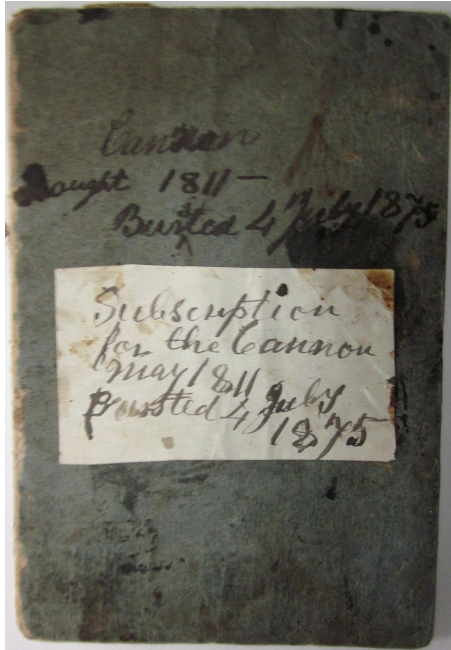 Cannon
Bought 1811 —
Busted 4 July 1875
Subscription
for the Cannon
May 1811
Bursted 4 July
1875